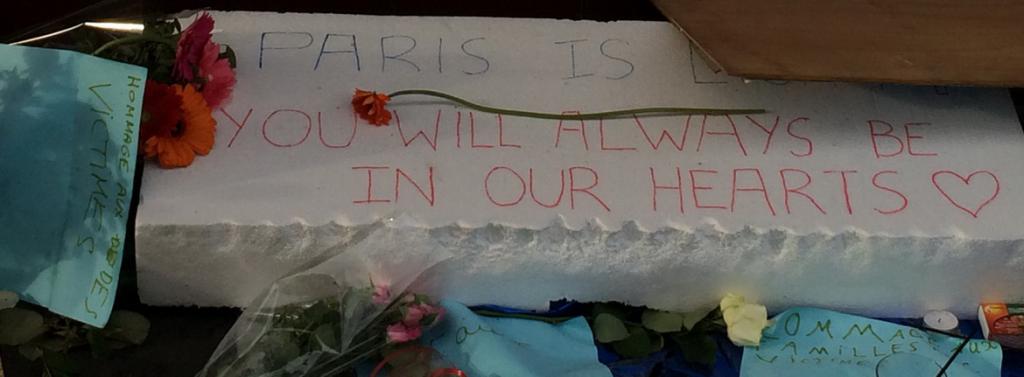 PARIS IS
YOU WILL ALWAYS BE
IN OUR HEARTS ♡
HOMMAGE AUX
VICTIMES
au
OMMAGE aux
AMILLES